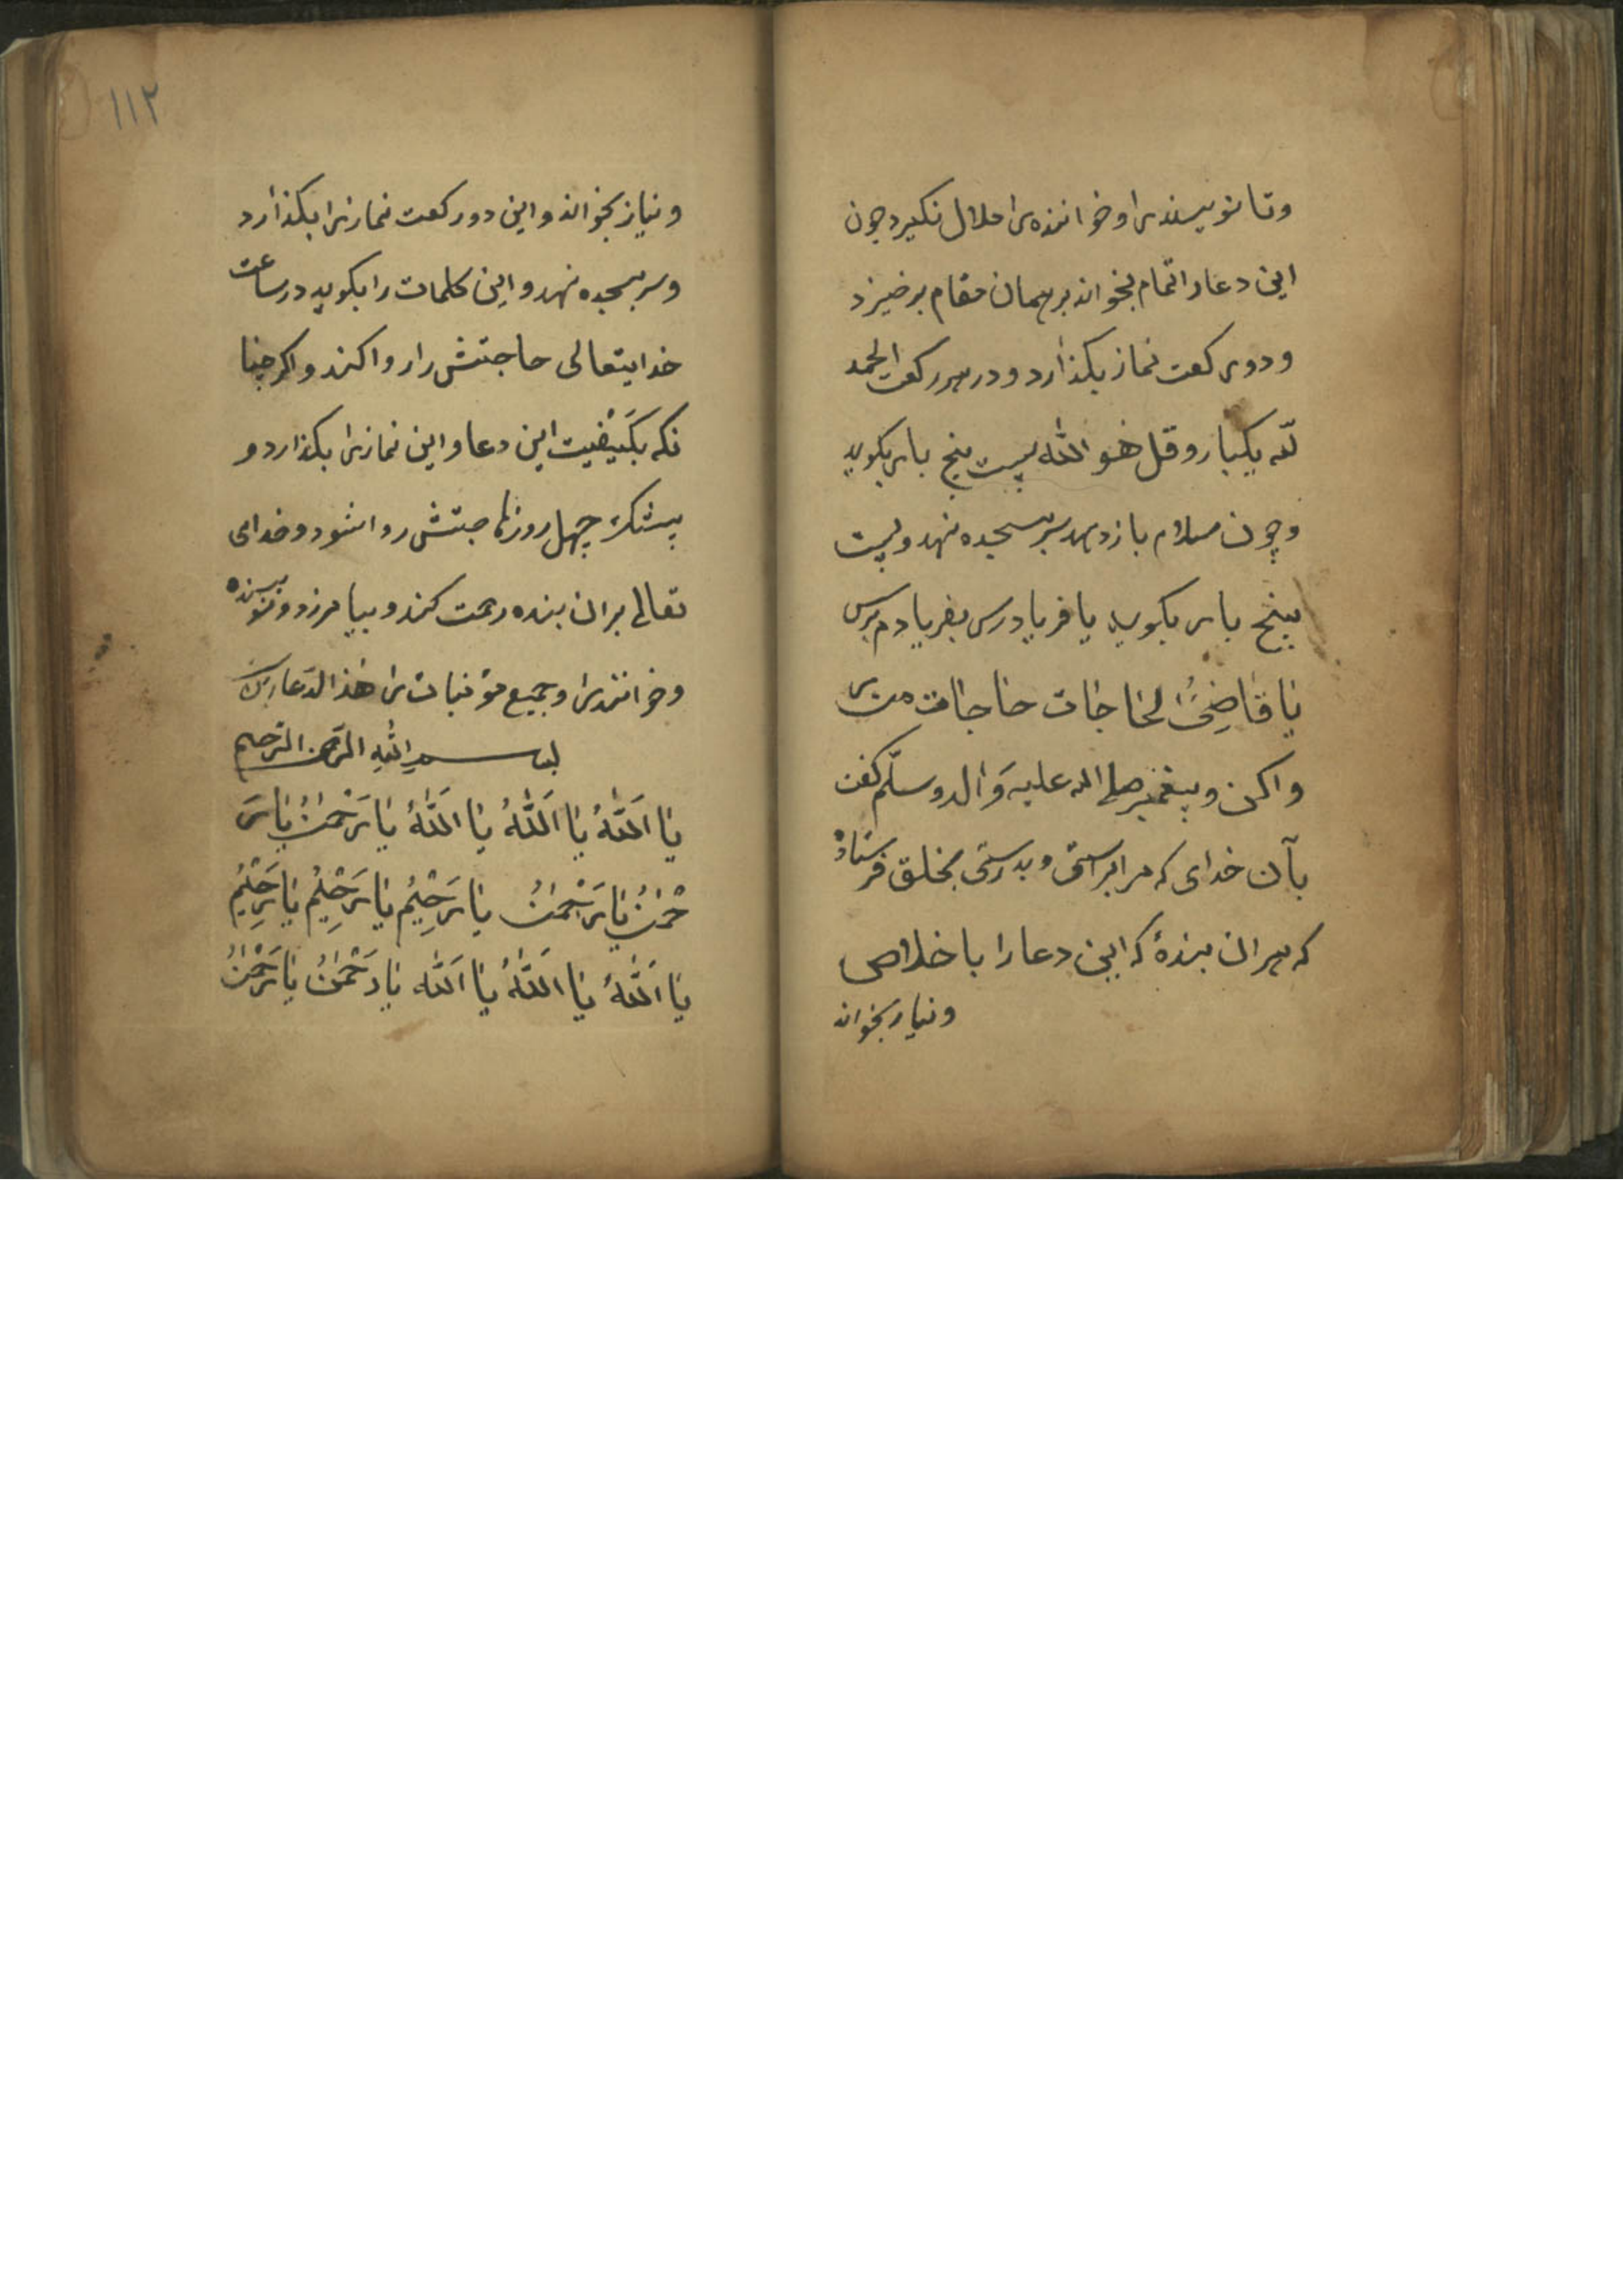 وتا نویسنده را و خواننده را ملال نکیرد چون
این دعا را تمام بخواند بر همان مقام برخیزد
و دو رکعت نماز بکذارد و در هر رکعت الحمد
لله یکبار و قل هو الله بیست پنج بار بکوید
و چون سلام باز دهد سر بسجده نهد و بیست
پنج بار بکوید یا فریادرس بفریادم برس
یا قاضِیَ الحاجات حاجات من
وا کن و پیغمبر صلی الله علیه وَاله وسلّم کفت
بآن خدای که مرا براستی و بدرستی بخلق فرستاده
که هر ان بندهٔ که این دعا را باخلاص
و نیاز بخواند
۱۱۲
و نیاز بخواند و این دو رکعت نماز را بکذارد
و سر بسجده نهد و این کلمات را بکوید در ساعت
خدایتعالی حاجتش را روا کند و اکر چنا
نکه بکَیفیت این دعا و این نماز را بکذارد و
بیشک چهل روز حاجتش روا شود و خدای
تعالی بر ان بنده رحمت کند و بیامرزد و نویسنده
و خواننده را و جمیع مؤمنات را هذا الدّعا
بسم اللهِ الرّحمن الرّحیم
یا اَللهُ یا اَللهُ یا اَللهُ یا رَحْمٰنُ یا رَ
حْمٰنُ یا رَحْمٰنُ یا رَحِیْمُ یا رَحِیْمُ یا رَحِیْمُ
یا اَللهُ یا اَللهُ یا اَللّه یا رَحْمٰنُ یا رَحْمٰنُ